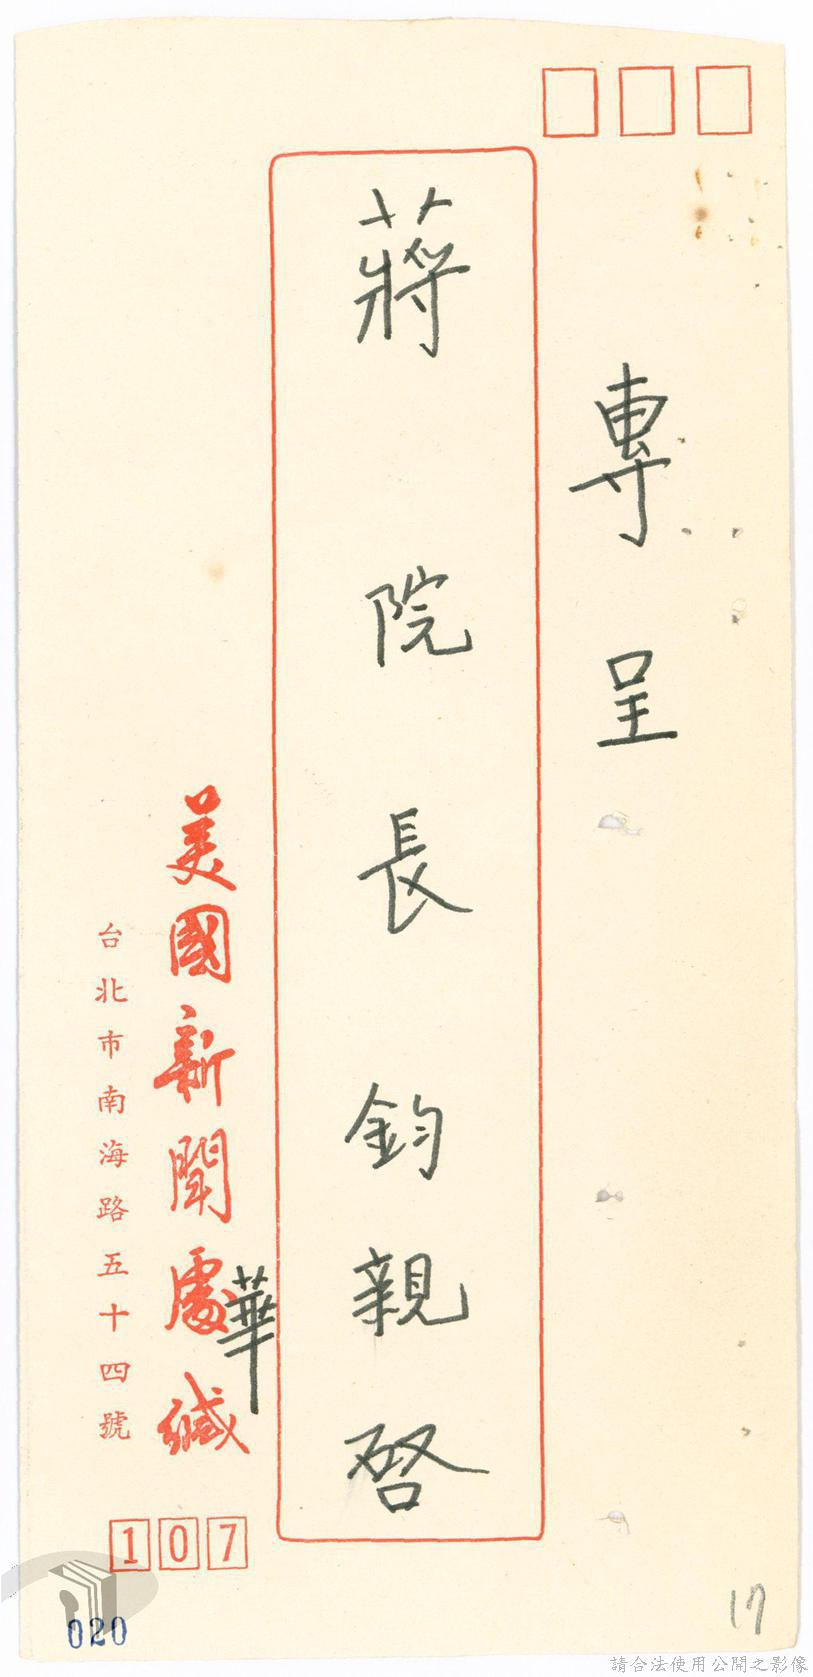 專呈
蔣院長鈞親啓
華
美國新聞處緘
台北市南海路五十四號
107
020
17
請合法使用公開之影像